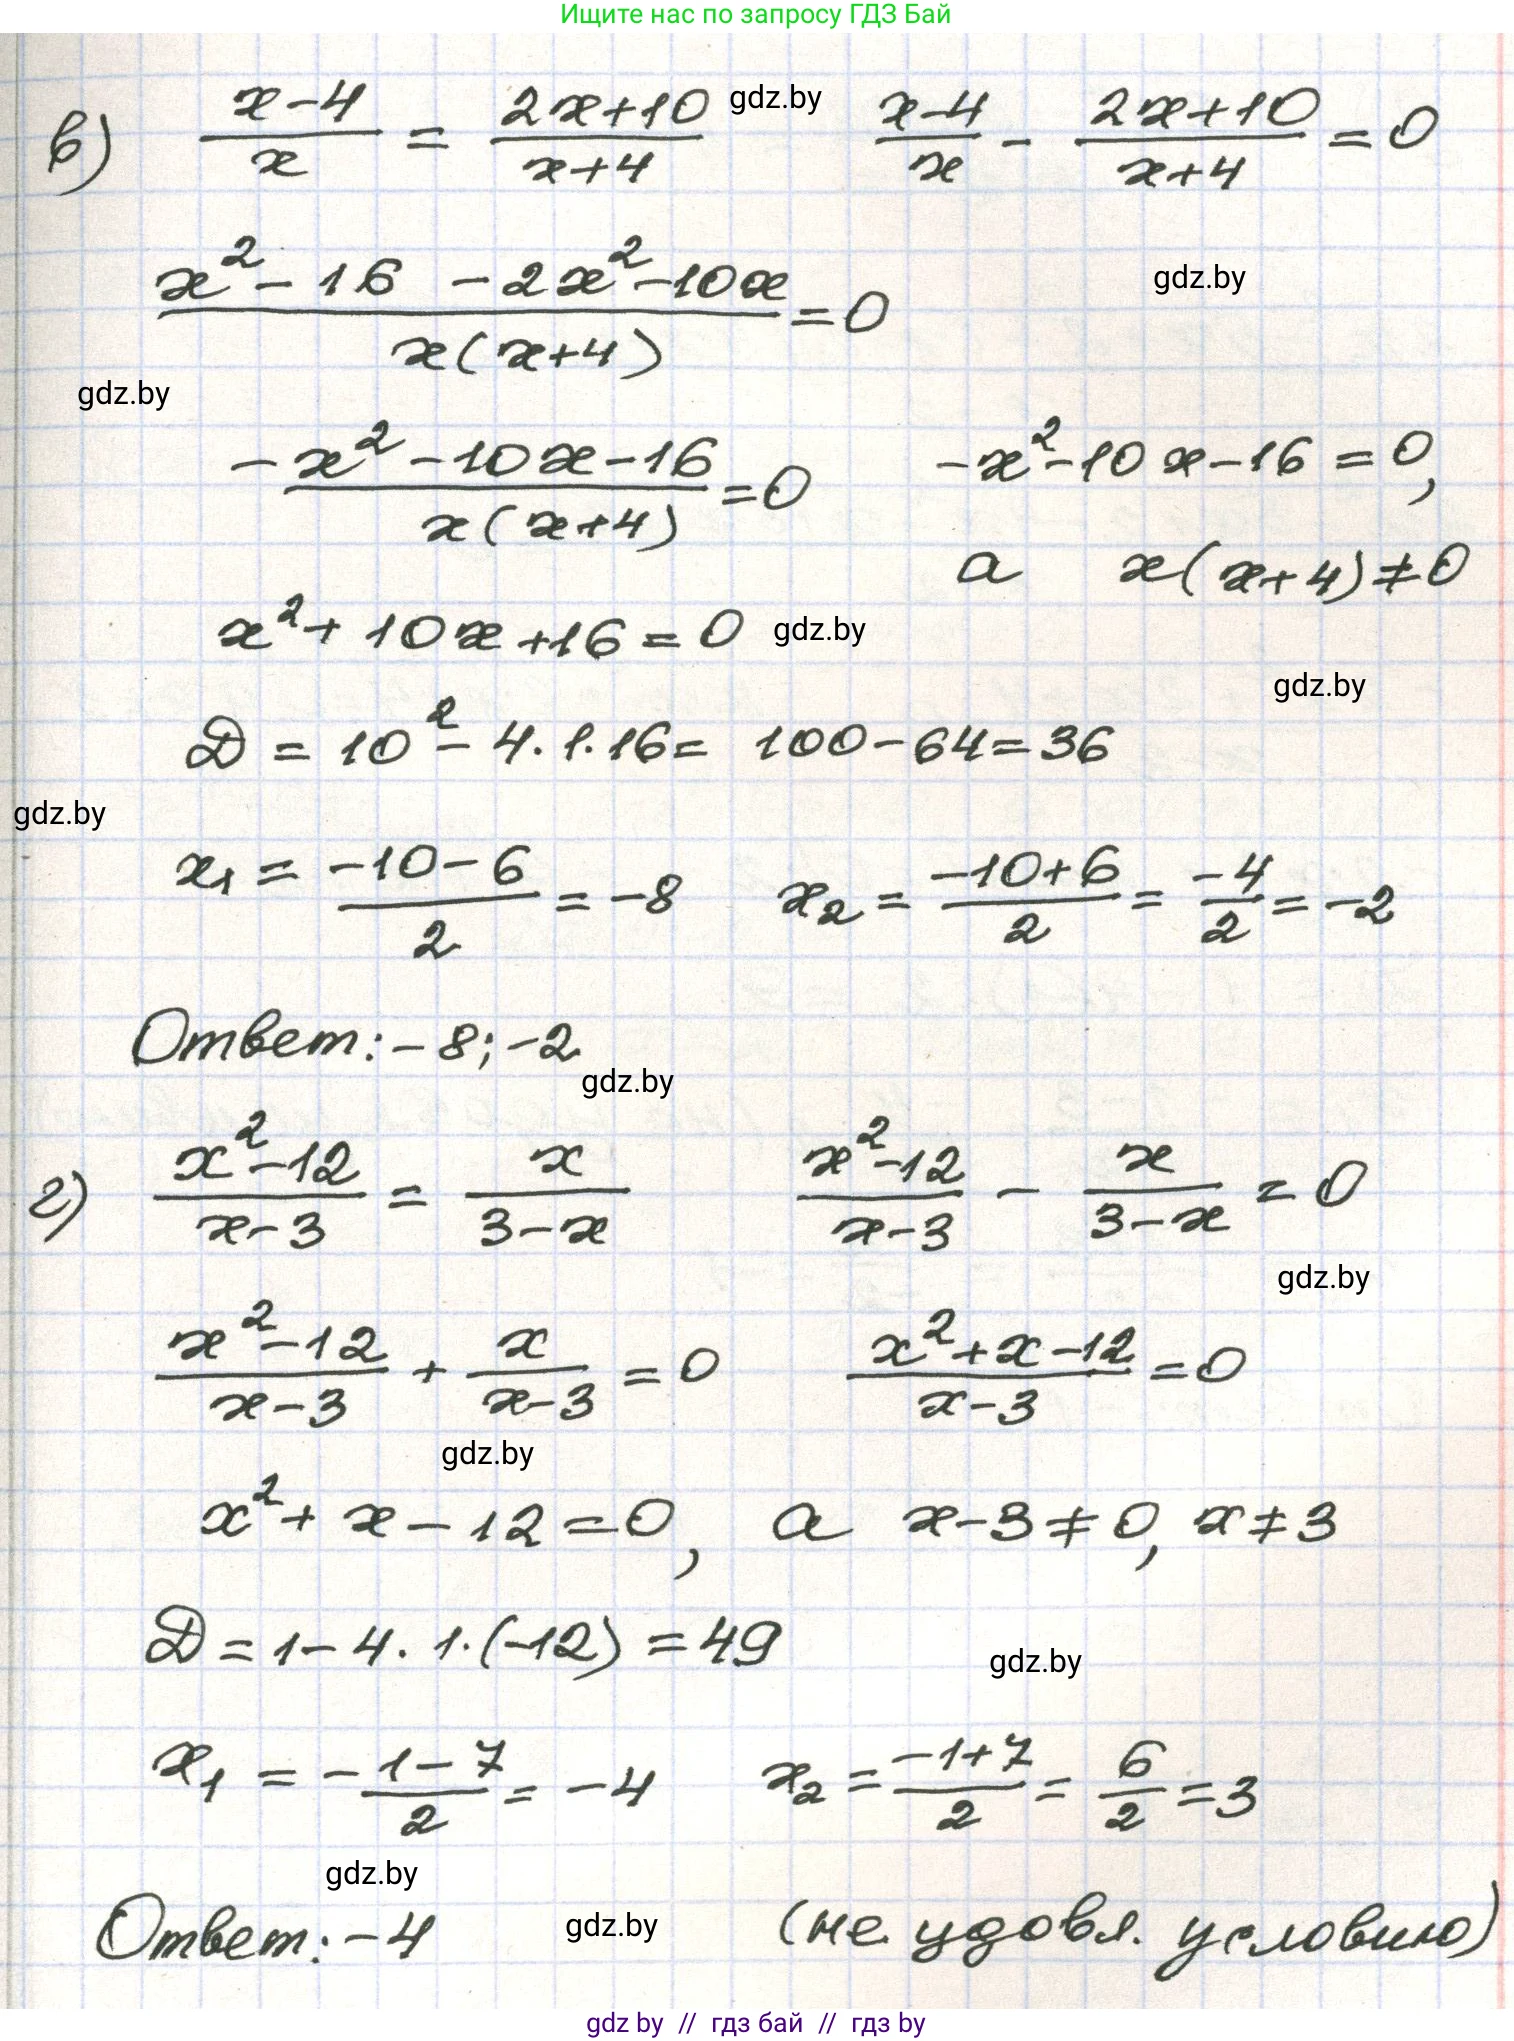 Ищите нас по запросу ГДЗ Бай
в) (x-4)/x = (2x+10)/(x+4) gdz.by (x-4)/x - (2x+10)/(x+4) = 0
(x²-16 -2x²-10x)/(x(x+4)) = 0 gdz.by
gdz.by
(-x²-10x-16)/(x(x+4)) = 0 -x²-10x-16=0,
а x(x+4)≠0
x²+10x+16=0 gdz.by
gdz.by
D = 10²-4·1·16= 100-64=36
gdz.by
x₁ = (-10-6)/2 = -8 x₂ = (-10+6)/2 = -4/2 = -2
Ответ: -8; -2
gdz.by
г) (x²-12)/(x-3) = x/(3-x) (x²-12)/(x-3) - x/(3-x) = 0
gdz.by
(x²-12)/(x-3) + x/(x-3) = 0 (x²+x-12)/(x-3) = 0
gdz.by
x²+x-12=0, а x-3≠0, x≠3
D=1-4·1·(-12)=49
gdz.by
x₁ = (-1-7)/2 = -4 x₂ = (-1+7)/2 = 6/2 = 3
gdz.by
Ответ: -4 gdz.by (не удовл. условию)
gdz by // гдз бай // gdz by